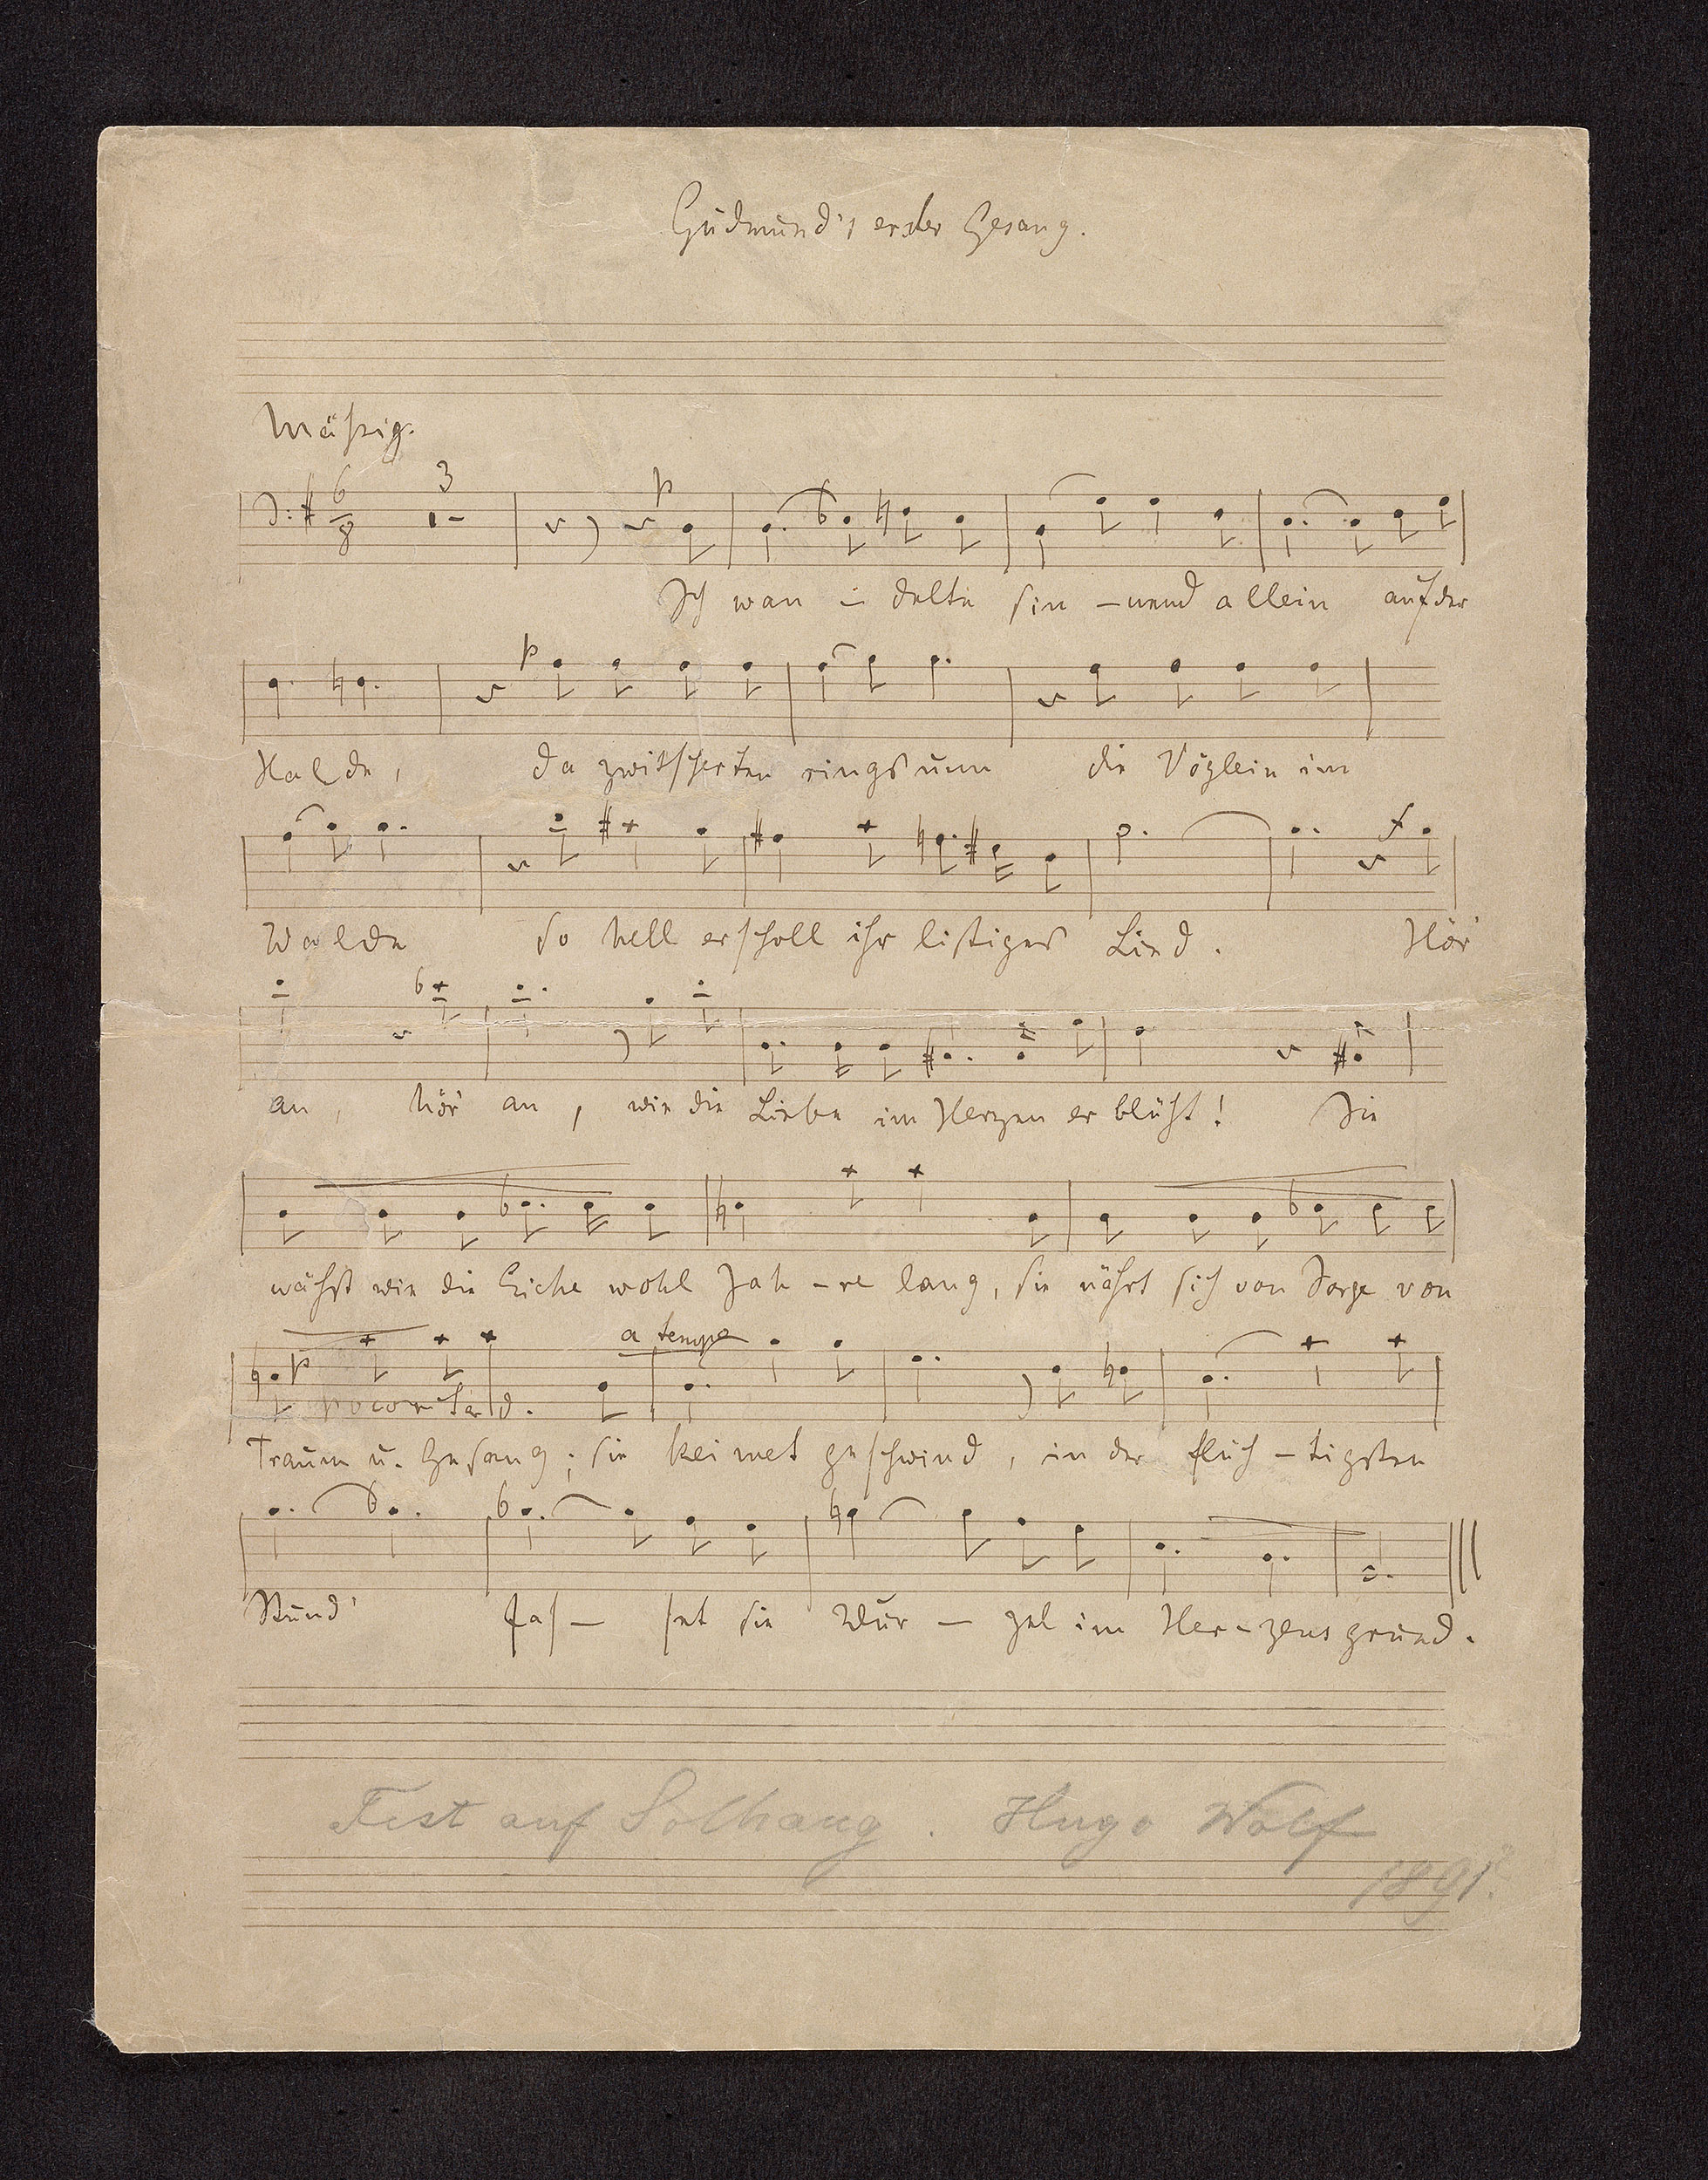 Gudmund's erster Gesang.
Mäßig.
6 3 p
8
Ich wan - delte sin - nend allein auf der
p
Halde, da zwitscherten ringsum die Vöglein im
f
Walde so hell erscholl ihr listiges Lied. Hör'
an, hör' an, wie die Liebe im Herzen erblüht! Sie
wächst wie die Eiche wohl Jah - re lang, sie nährt sich von Sorge von
a tempo
p poco ritard.
Traum u. Gesang; sie keimet geschwind, in der flüch - tigsten
Stund' fas - set sie Wur - zel im Her - zens grund.
Fest auf Solhaug. Hugo Wolf
1891.